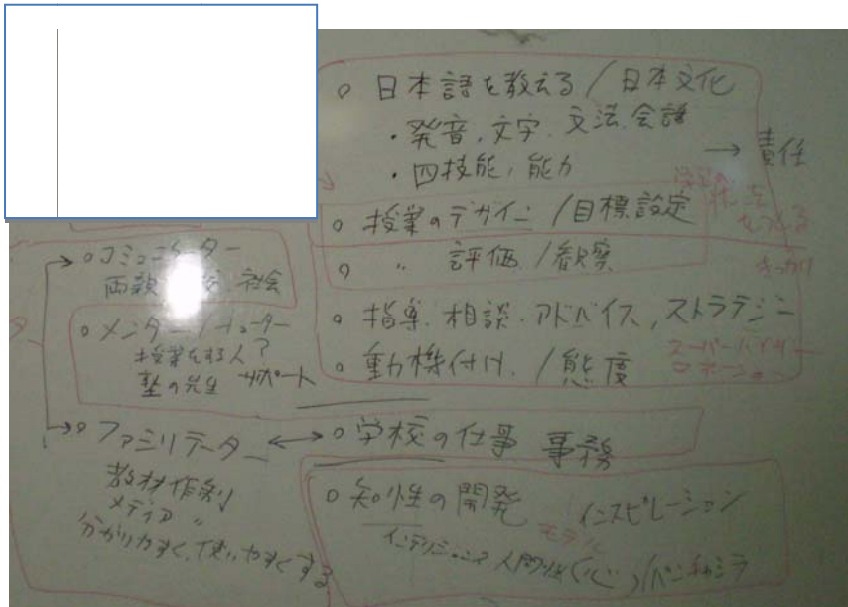 ○ 日本語を教える / 日本文化
・発音、文字、文法、会話
・四技能、能力
→ 責任
○ 授業のデザイン / 目標設定
○ 〃 評価 / 観察
○ 指導・相談・アドバイス、ストラテジー
○ 動機付け / 態度
きっかけ
スーパーバイザー
○ コミュニケーター
両親 社会
○ メンター / チューター
授業をする人?
塾の先生 サポート
○ ファシリテーター ↔ ○ 学校の仕事 事務
教材作制
メディア 〃
分かりやすく、使いやすくする
○ 知性の開発 インスピレーション
モデル
人間性(心)